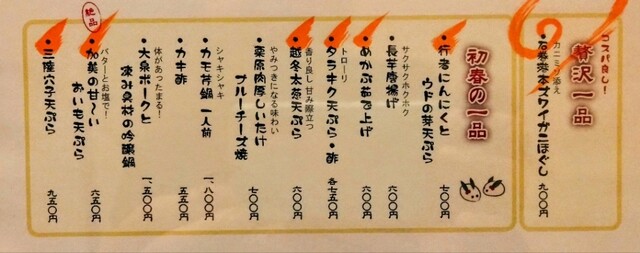 コスパ良し！
贅沢一品
カニミソ添え
・石巻港本ズワイガニほぐし
九〇〇円
初春の一品
・行者にんにくと
ウドの芽天ぷら
七〇〇円
サクサクホクホク
・長芋唐揚げ
六〇〇円
・めかぶ茹で上げ
六〇〇円
トローリ
・タラキク天ぷら・酢
各七五〇円
香り良し 甘み際立つ
・越冬太茶天ぷら
六〇〇円
やみつきになる味わい
・栗原肉厚しいたけ
ブルーチーズ焼
七〇〇円
シャキシャキ
・カモ芹鍋 一人前
一、八〇〇円
・カキ酢
五五〇円
体があったまる！
・大泉ポークと
凍み臭村の吟醸鍋
一、五〇〇円
絶品
バターとお塩で！
・加美の甘〜い
おいも天ぷら
六五〇円
・三陸穴子天ぷら
九五〇円